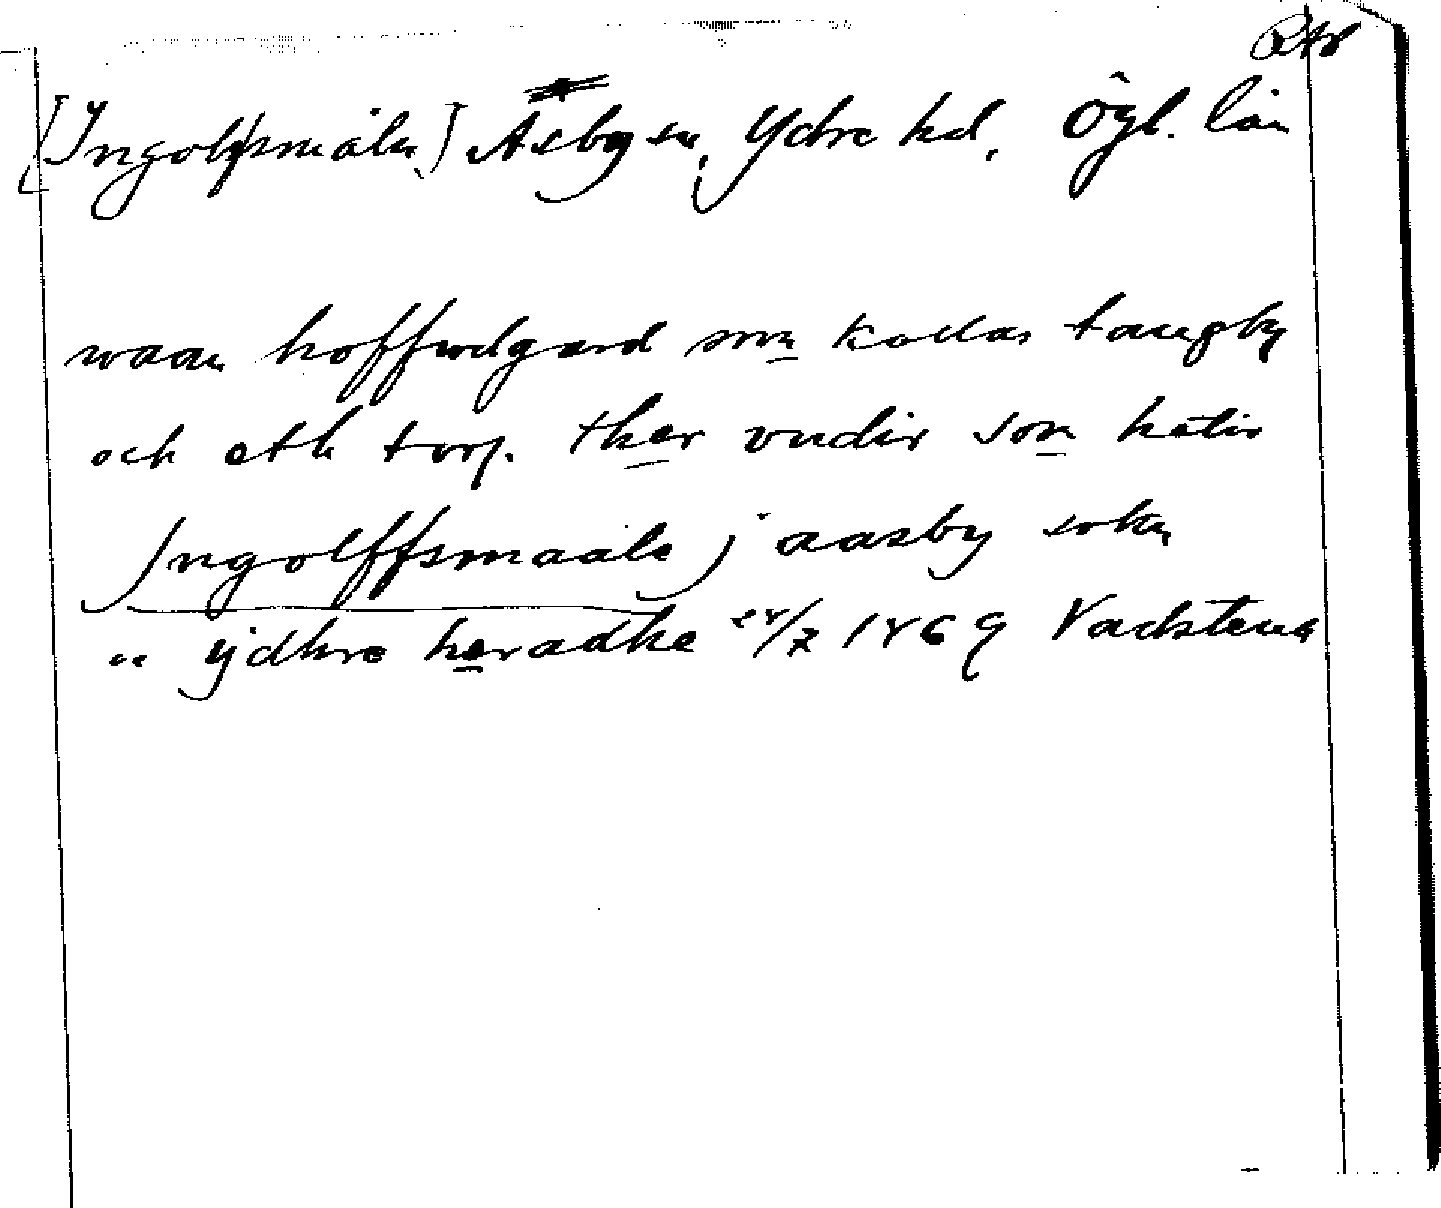 [Ingolfsmåla] Asby sn, Ydre hd, Ögl. län
waan hoffwdgard som kallas
och eth torp ther vndir som hetir
Jngolffsmaala j aasby sokn
oc ijdhre heradhe 1469 Vadstena